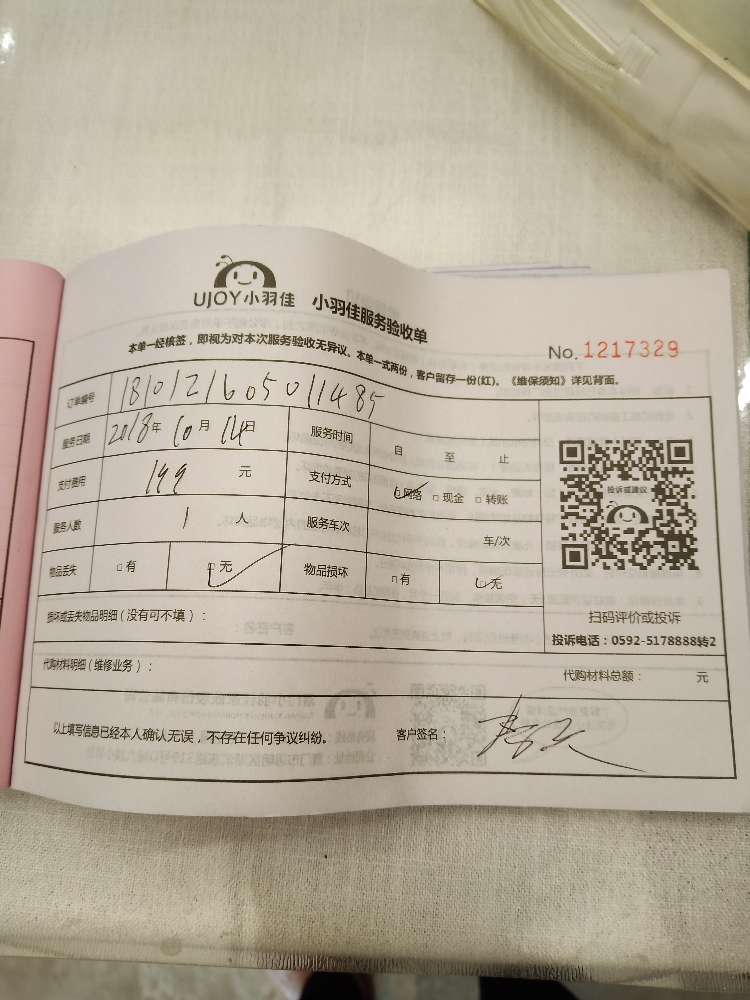 UJOY小羽佳 小羽佳服务验收单
本单一经核签，即视为对本次服务验收无异议。本单一式两份，客户留存一份(红)。《维保须知》详见背面。
No. 1217329
订单编号 1810121605011485
服务日期 2018年 10月 14日 服务时间 自 至 止
支付费用 199 元 支付方式 □网络 □现金 □转账
服务人数 1 人 服务车次 车/次
物品丢失 □有 □无 物品损坏 □有 □无
投诉或建议
扫码评价或投诉
投诉电话：0592-5178888转2
损坏或丢失物品明细（没有可不填）：
代购材料明细（维修业务）： 代购材料总额： 元
以上填写信息已经本人确认无误，不存在任何争议纠纷。 客户签名：